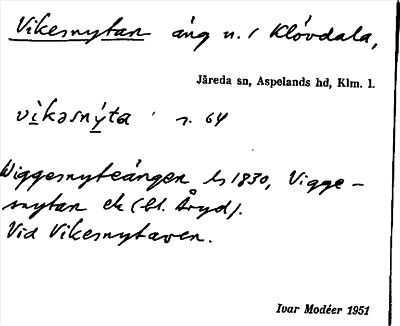 Vikesnytan äng n. / Klövdala,
Järeda sn, Aspelands hd, Klm. l.
vìkəsný̀ta s. 64
Wiggesnyteängen ls 1830, Vigge-
snytan ek (bl. Åryd).
Vid Vikesnytaren.
Ivar Modéer 1951